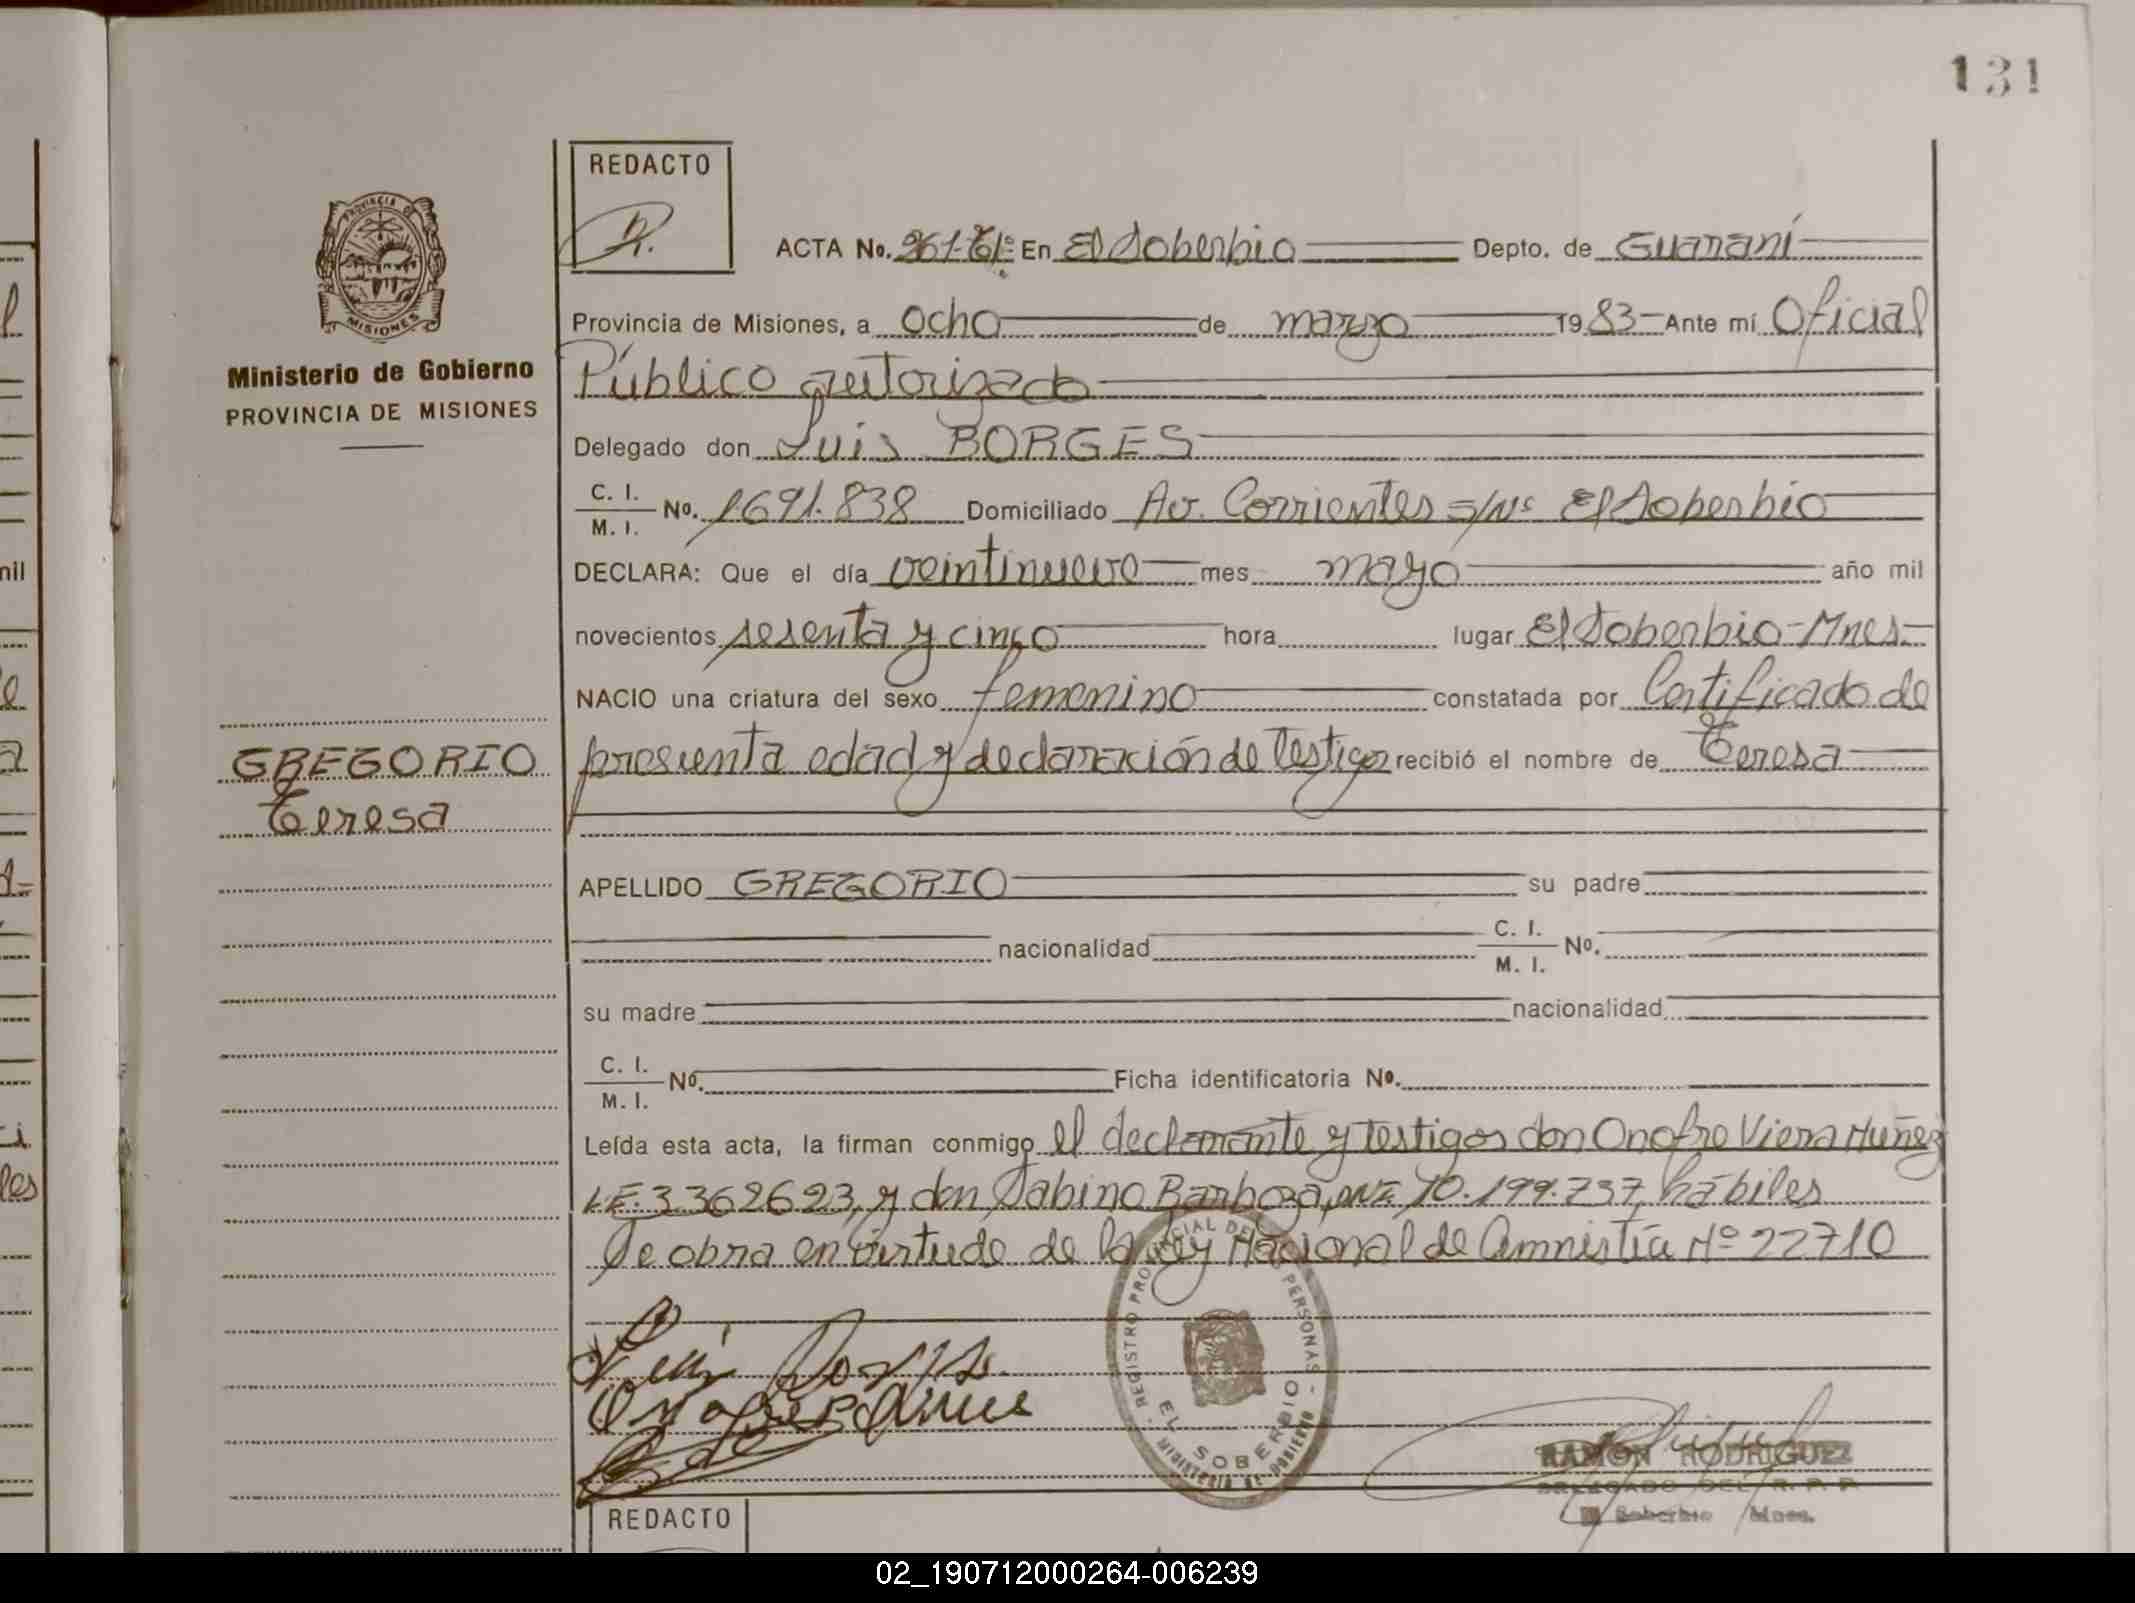 131
REDACTO
ACTA No. 261-T1º En El Soberbio Depto. de Guaraní
Provincia de Misiones, a ocho de marzo 1983 Ante mí Oficial
Ministerio de Gobierno
PROVINCIA DE MISIONES
Público autorizado
Delegado don Luis BORGES
C. I.
M. I. No. 1691.838 Domiciliado Av. Corrientes s/Nº El Soberbio
DECLARA: Que el día veintinueve mes mayo año mil
novecientos sesenta y cinco hora lugar El Soberbio-Mnes.
NACIO una criatura del sexo femenino constatada por Certificado de
presunta edad y declaración de Testigos recibió el nombre de Teresa
GREGORIO
Teresa
APELLIDO GREGORIO su padre
nacionalidad C. I.
M. I. No.
su madre nacionalidad
C. I.
M. I. No. Ficha identificatoria No.
Leída esta acta, la firman conmigo el declarante y testigos don Onofre Viera Nuñez
L.E. 3362623, y don Sabino Barboza, DNI. 10.199.737, hábiles
Se obra en virtude de la Ley Nacional de Amnistía Nº 22710
REGISTRO PROVINCIAL DE PERSONAS
EL SOBERBIO
MINISTERIO DE GOBIERNO
RAMON RODRIGUEZ
DELEGADO DEL R. P. P.
Soberbio Mnes.
REDACTO
02_190712000264-006239